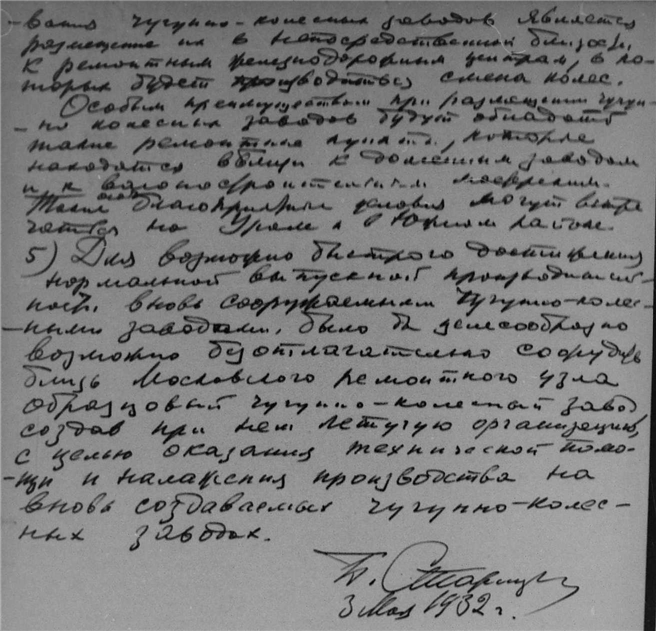 -вания чугунно-колесных заводов является
размещение их в непосредственной близости
к ремонтным железнодорожным центрам, в ко-
торых будет производиться смена колес.
Особым преимуществом при размещении чугун-
-но колесных заводов будут обладать
такие ремонтные пункты, которые
находятся вблизи к доменным заводам
и к вагоностроительным
Такие благоприятные условия могут встре
чаться на Урале и в Южном районе.
5) Для возможно быстрого достижения
нормальной выпускной производитель-
ности вновь сооружаемыми чугунно-колес-
-ными заводами, было бы целесообразно
возможно безотлагательно соорудить
близь Московского ремонтного узла
образцовый чугунно-колесный завод
создав при нем летучую организацию,
с целью оказания технической помо-
-щи и налажения производства на
вновь создаваемых чугунно-колес-
ных заводах.
3 мая 1932 г.